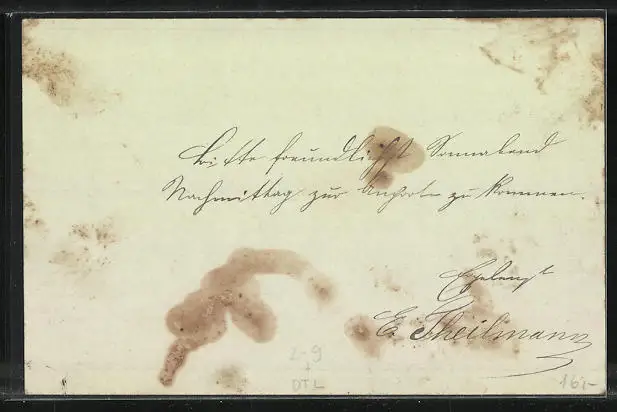 Bitte freundlichst Sonnabend
Nachmittag zur Anprobe zu kommen.
E. Theilmann
2-9
+
DTL
16,-